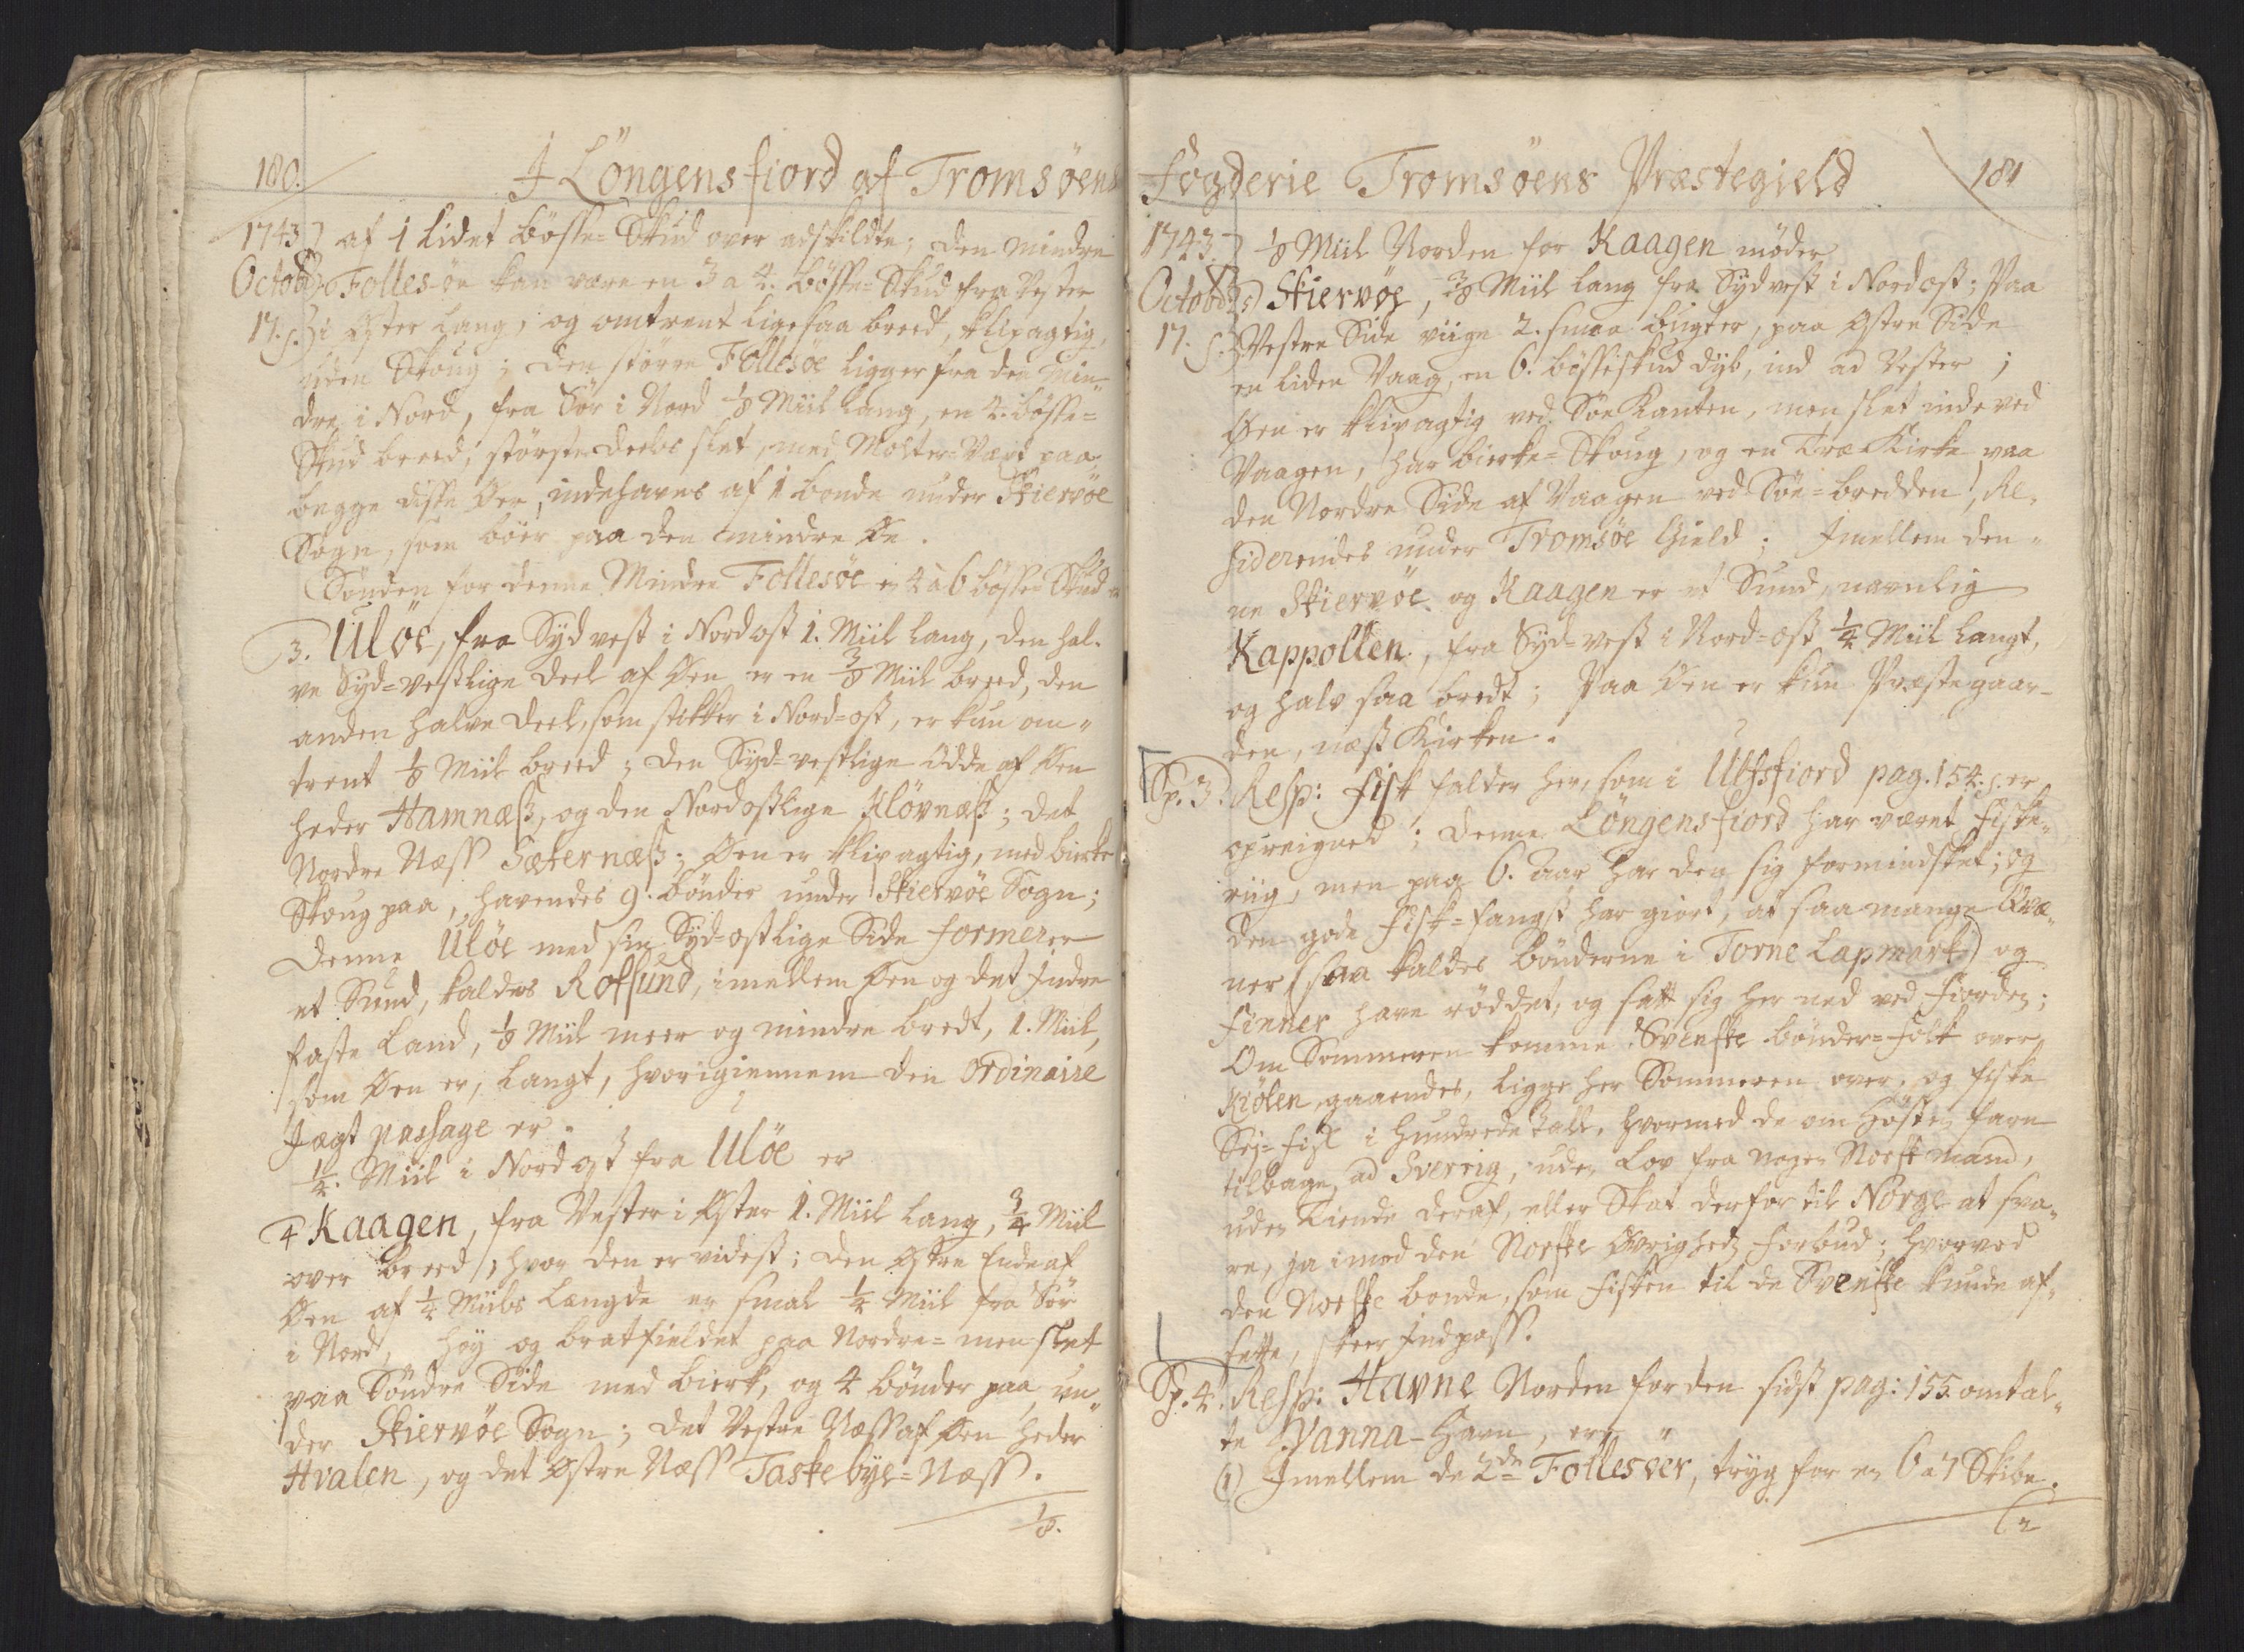 180.
I Löngensfiord af Tromsøens
1743 af 1 lidet bösse-Skud over adskildte; den mindre
Octobr Folles-öe kan være en 3 a 4. bösse-Skud fra Vester
17. s. i Øster lang, og omtrent ligesaa breed, klipagtig,
uden Skoug; den större Follesöe ligger fra den min-
dre i Nord, fra Sör i Nord 1/8 Miil lang, en 4. bösse-
Skud breed, störstedeels slet, med Molter-Vært paa
begge disse Øer, indehaves af 1 bonde under Skiervöe
Sogn, som böer paa den mindre Øe.
Sönden for denne Mindre Follesöe en 4 à 6 bösse-Skud er
3. Ulöe, fra Sydvest i Nordost 1. Miil lang, den hal-
ve Syd-vestlige deel af Øen er en 3/8 Miil breed, den
anden halve deel, som stikker i Nord-ost, er kun om-
trent 1/8 Miil breed; den Syd-vestlige Odde af Øen
heder Hamnæss, og den Nordostlige Klövnæss; det
Nordre Næss Sæternæss; Øen er klipagtig, med birke
Skoug paa, havendes 9. bönder under Skiervöe Sogn;
Denne Ulöe med sin Syd-ostlige Side formerer
et Sund, kaldes Rotsund, imellem Øen og det Indre
faste Land, 1/8 Miil meer og mindre bredt, 1. Miil,
som Øen er, langt, hvorigiennem den ordinaire
Jægt passage er.
1/4. Miil i Nordost fra Ulöe er
4 Kaagen, fra Vester i Øster 1. Miil lang, 3/4 Miil
over breed, hvor den er videst; den Østre Ende af
Øen af 1/4 Miils Længde er smal 1/4 Miil fra Sör
i Nord, höy og bratfieldet paa Nordre- men slet
paa Söndre Side med birk, og 4 bönder paa, un-
der Skiervöe Sogn; det Vestre Næss af Øen heder
Hvalen, og det Østre Næss Taskebye-Næss.
1/8.
Fogderie Tromsöens Præstegield
181
1743. 1/8 Miil Norden for Kaagen möder
Octobr 5) Skiervöe, 3/8 Miil lang fra Sydvest i Nordost; Paa
17. s. Vestre Side viige 2. smaa bugter, paa Østre Side
en liden Vaag, en 6. bösseskud dyb, ind ad Vester;
Øen er klipagtig ved SöeKanten, men slet inde ved
Vaagen, har birke-Skoug, og en Træ-Kirke paa
den Nordre Side af Vaagen ved Söe-bredden, Re-
siderendes under Tromsöe Gield; Imellem den-
ne Skiervöe og Kaagen er et Sund, navnlig
Kappollen, fra Syd-vest i Nord-ost 1/4 Miil langt,
og halv saa bredt; Paa Øen er kun Præstegaar-
den, næst Kirken.
Sp. 3. Resp: Fisk falder her, som i Ulfsfiord pag. 154. s. er
opreignet; Denne Löngensfiord har været fiske-
riig, men paa 6. aar har den sig formindsket; og
den gode Fisk-fangst har giort, at saa mange Qvæ-
ner (saa kaldes bönderne i Torne Lapmark) og
Finner have röddet, og satt sig her ned ved fiorden;
Om Sommeren komme Svenske bönder-folk over
Kiölen gaaendes, ligge her Sommeren over, og fiske
Sej-fisk i hundrede tall, hvormed de om hösten fare
tilbage ad Sverrig, uden Lov fra nogen Norsk mand,
uden Tiende deraf, eller Skat derfor til Norge at sva-
re, ja imod den Norske Øvrigheds forbud; hvorved
den Norske bonde, som fisken til de Svenske kunde af-
sette, skeer Indpass.
Sp. 4. Resp: Havne Norden for den sidst pag: 155 omtal-
te Vanna-Havn, ere
1) Imellem de 2de Follesöer, tryg for en 6 a 7 Skibe.